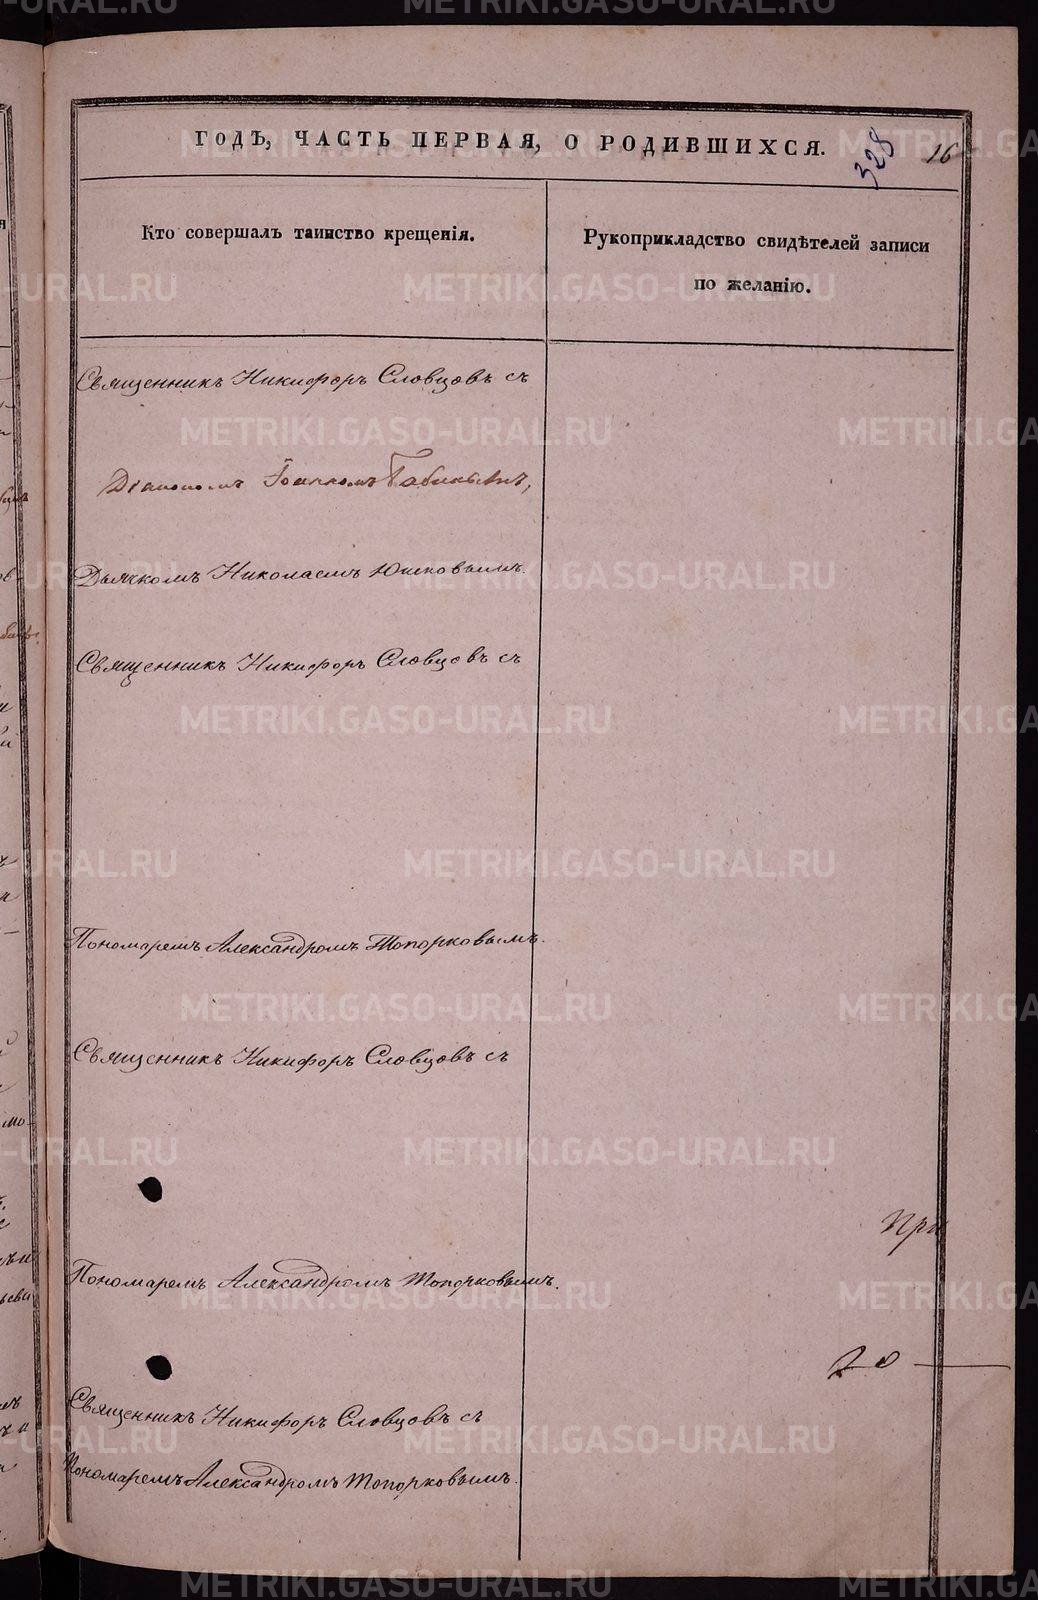 ГОДЪ, ЧАСТЬ ПЕРВАЯ, О РОДИВШИХСЯ.
328
16
Кто совершалъ таинство крещенія.
Рукоприкладство свидѣтелей записи
по желанію.
Священникъ Никифоръ Словцовъ съ
Діакономъ Іоанномъ
Дьячкомъ Николаемъ Юшковымъ.
Священникъ Никифоръ Словцовъ съ
Пономаремъ Александромъ Топорковымъ.
Священникъ Никифоръ Словцовъ съ
При
Пономаремъ Александромъ Топорковымъ.
Священникъ Никифоръ Словцовъ съ
Пономаремъ Александромъ Топорковымъ.
METRIKI.GASO-URAL.RU